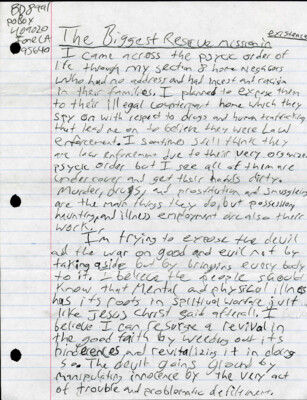 BD8991
PO BOX
409020
Ione CA
95640
The Biggest Rescue mission in
existence
I came across the psycic order of
life through my section 8 home Neighbors
who had no address and had Incest and racism
in their families. I planned to expose them
to their Illegal counterpart home which they
spy on with respect to drugs and human trafficking
that lead me on to believe they were Law
enforcement. I somtimes still think they
are law enforcement due to their very organized
psycic order but I see all of them are
undercover and get their hands dirty.
Murder, drugs, and prostitution and smuggleing
are the main things they do, but possession,
haunting, and illness employment are also their
work.
I'm trying to expose the devil
and the war on good and evil not by
taking aside but by bringing every body
to it. I believe the people should
know that mental and physical illness
has its roots in spiritual warfare just
like Jesus Christ said after all. I
believe I can resurge a revival in
the good faith by weeding out its
hinderences and revitalizing it in doing
so. The devil gains ground by
manipulating innocence by the very act
of trouble and problomatic defilement.